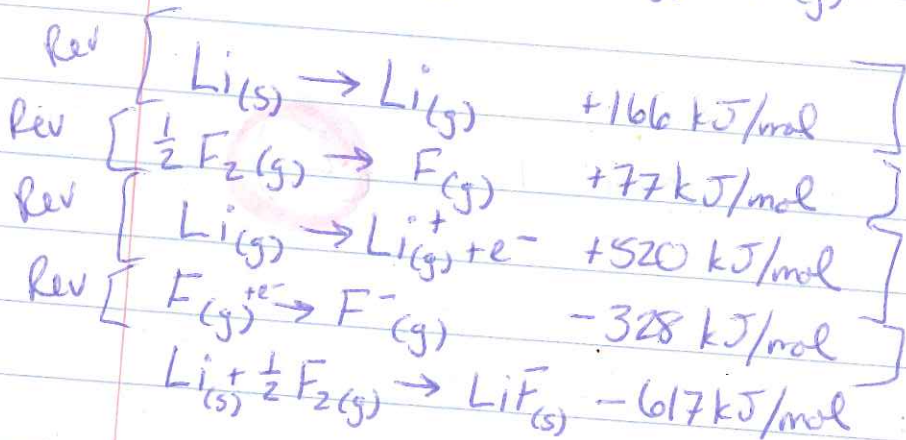 (g)
Rev [ Li(s) → Li(g) +166 kJ/mol ]
Rev [ ½ F₂(g) → F(g) +77 kJ/mol ]
Rev [ Li(g) → Li⁺(g) + e⁻ +520 kJ/mol ]
Rev [ F(g) +e⁻ → F⁻(g) -328 kJ/mol ]
Li(s) + ½ F₂(g) → LiF(s) -617 kJ/mol